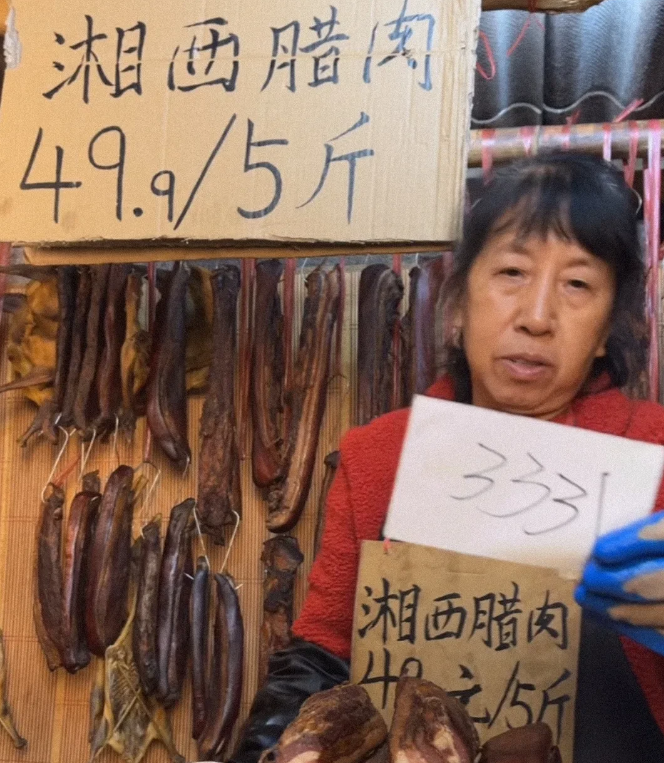 湘西腊肉
49.9/5斤
3331
湘西腊肉
49 元/5斤